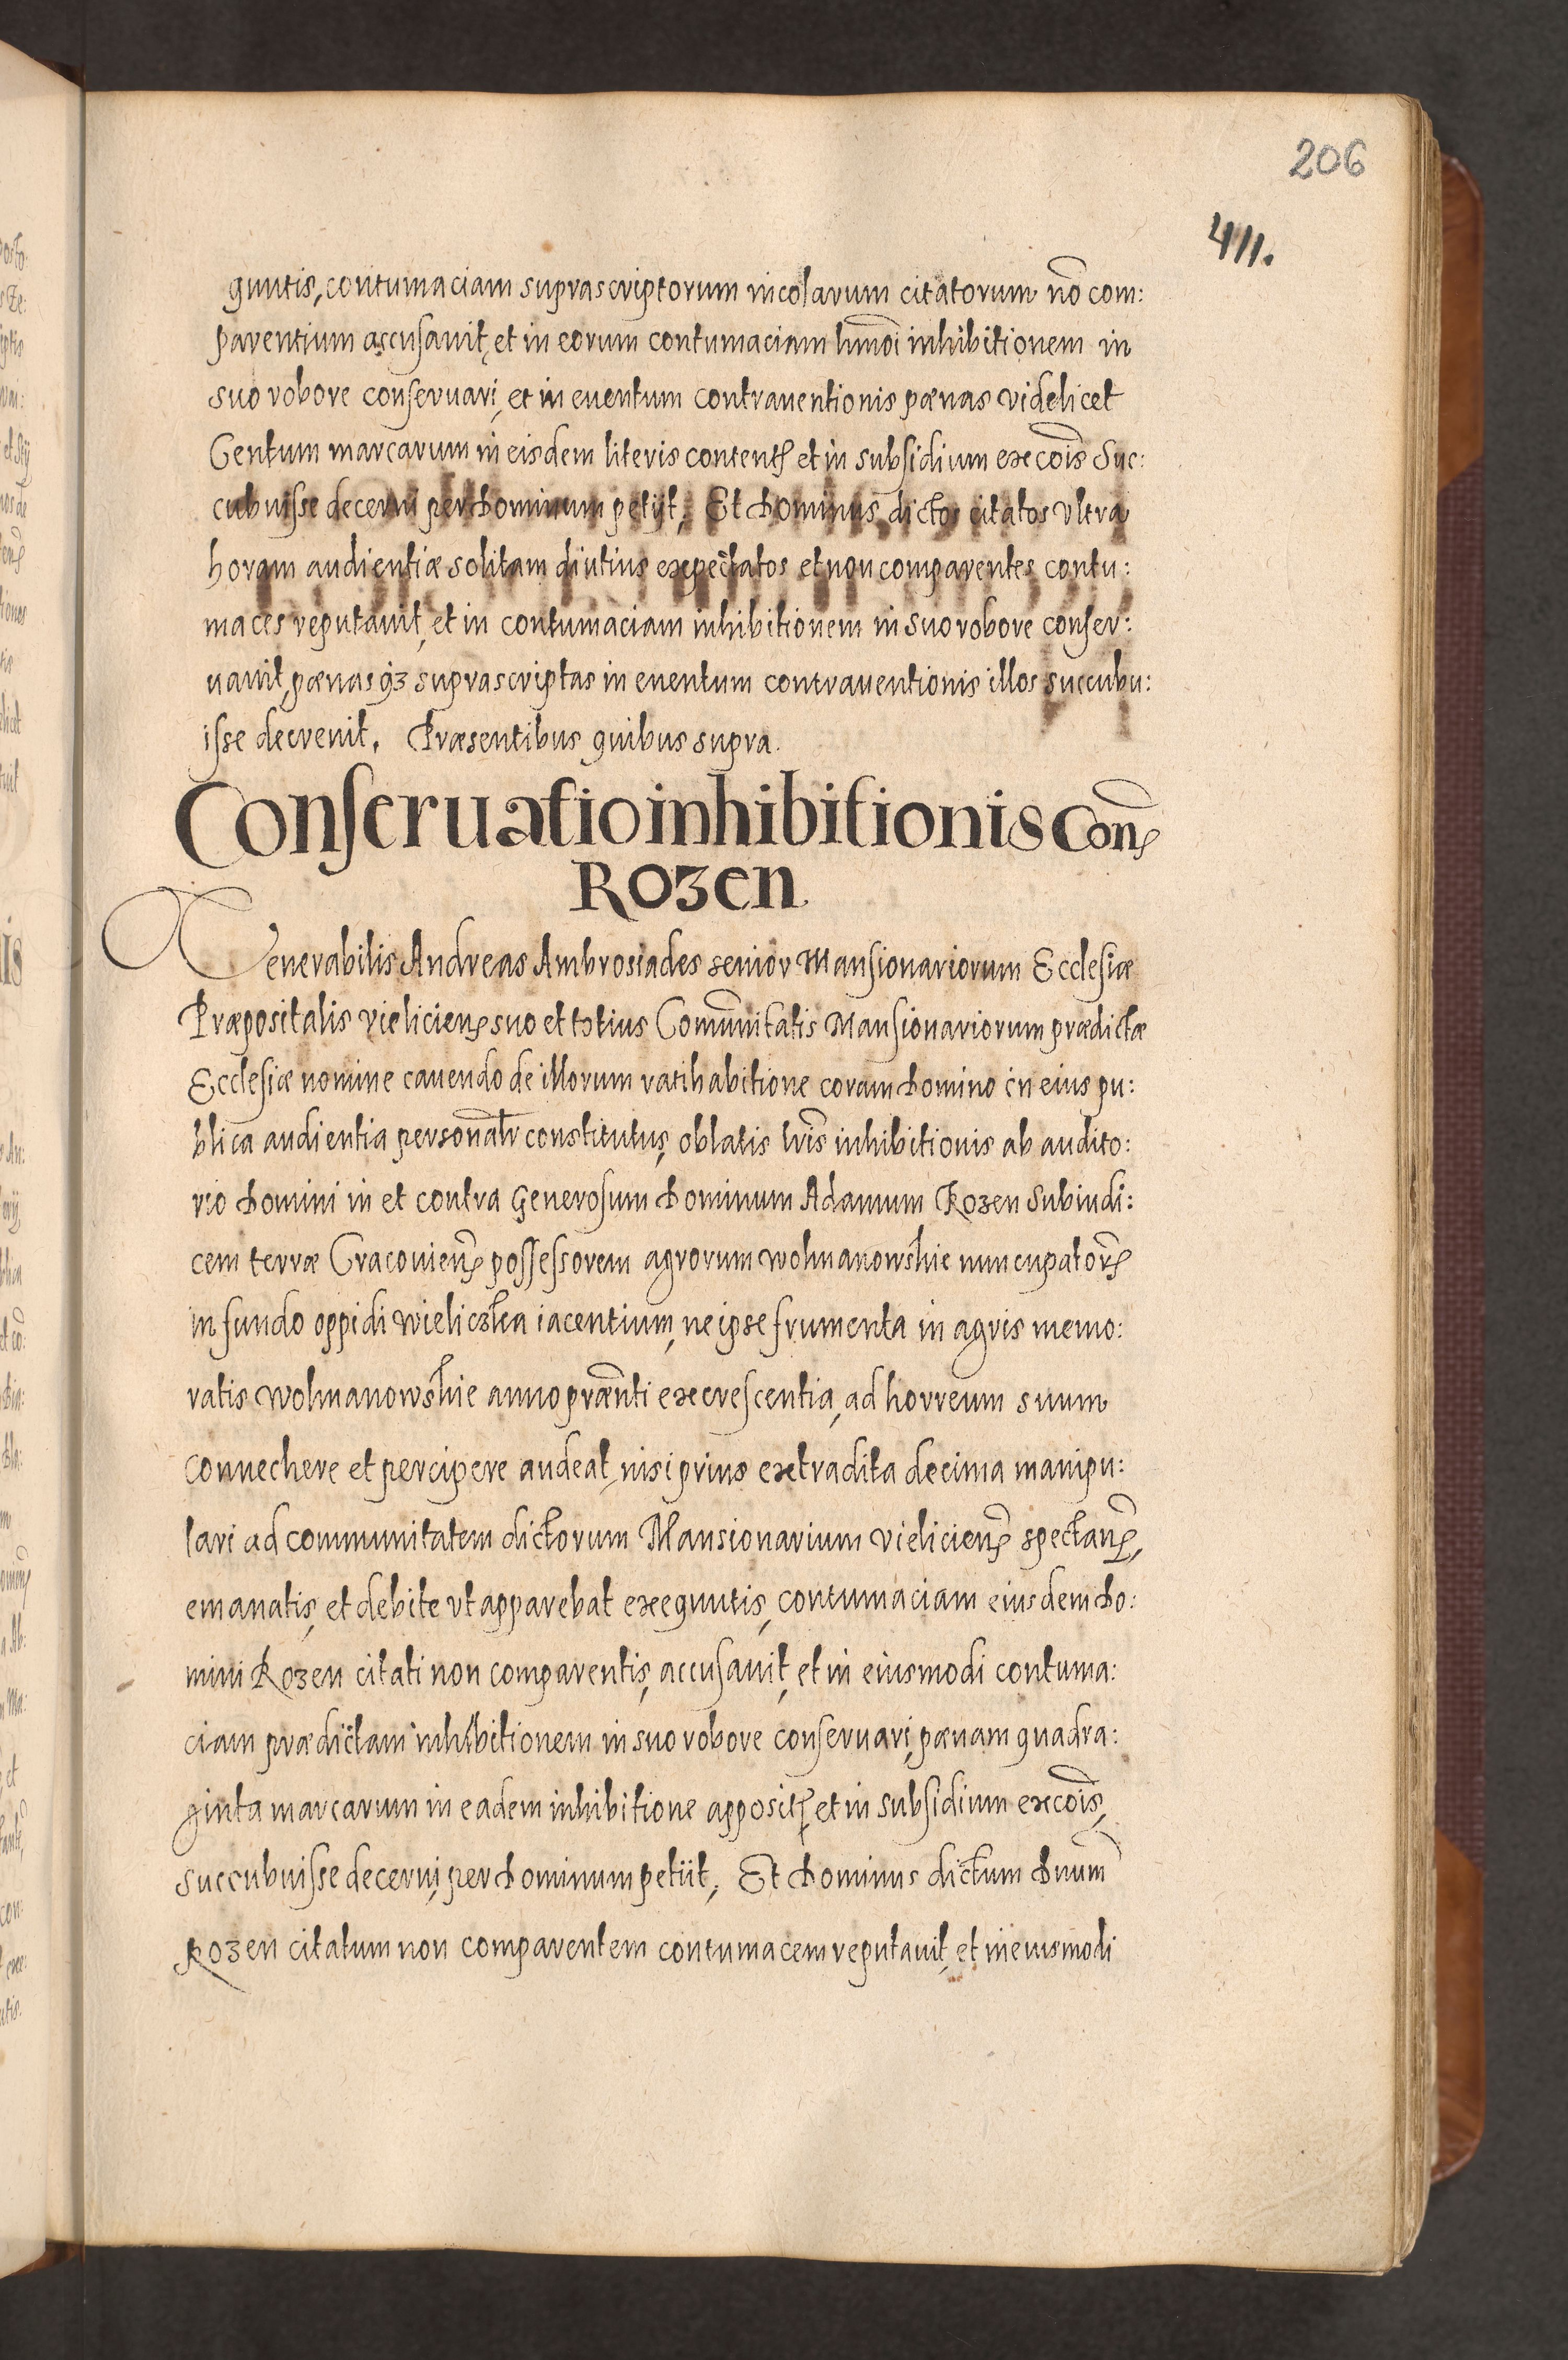 206
411.
quutis, contumaciam suprascriptorum incolarum citatorum nõ com:
parentium accusauit, et in eorum contumaciam hmõi inhibitionem in
suo robore conseruari, et in euentum contrauentionis pænas videlicet
Centum marcarum in eisdem literis contentꝭ et in subsidium execõis suc:
cubuisse decerni per Dominum petijt, Et Dominus dictos citatos vltra
horam audientiæ solitam diutius expectatos et non comparentes contu:
maces reputauit, et in contumaciam inhibitionem in suo robore conser:
uauit, pænas qз suprascriptas in euentum contrauentionis illos succubu:
isse decreuit. Præsentibus quibus supra.
Conseruatio inhibitionis Conꝭ
Rozen
Venerabilis Andreas Ambrosiades senior Mansionariorum Ecclesiæ
Præpositalis vielicienꝭ suo et totius Comũnitatis Mansionariorum prædictæ
Ecclesiæ nomine cauendo de illorum ratihabitione coram Domino in eius pu:
blica audientia personalr̃ constitutus, oblatis lr̃is inhibitionis ab audito:
rio Domini in et contra Generosum Dominum Adamum Rozen Subiudi:
cem terræ Cracouienꝭ possessorem agrorum wolmanowskie nuncupatorꝭ
in fundo oppidi wieliczka iacentium, ne ipse frumenta in agris memo:
ratis wolmanowskie anno præñti excrescentia, ad horreum suum
conuechere et percipere audeat, nisi prius extradita decima manipu:
lari ad communitatem dictorum Mansionarium vielicienꝭ spectanꝭ,
emanatis, et debite vt apparebat exequutis, contumaciam eiusdem Do:
mini Rozen citati non comparentis, accusauit, et in eiusmodi contuma:
ciam prædictam inhibitionem in suo robore conseruari, pænam quadra:
ginta marcarum in eadem inhibitione appositꝭ et in subsidium execõis,
succubuisse decerni, per Dominum petiit, Et Dominus dictum Dnum̃
Rozen citatum non comparentem contumacem reputauit, et in eiusmodi